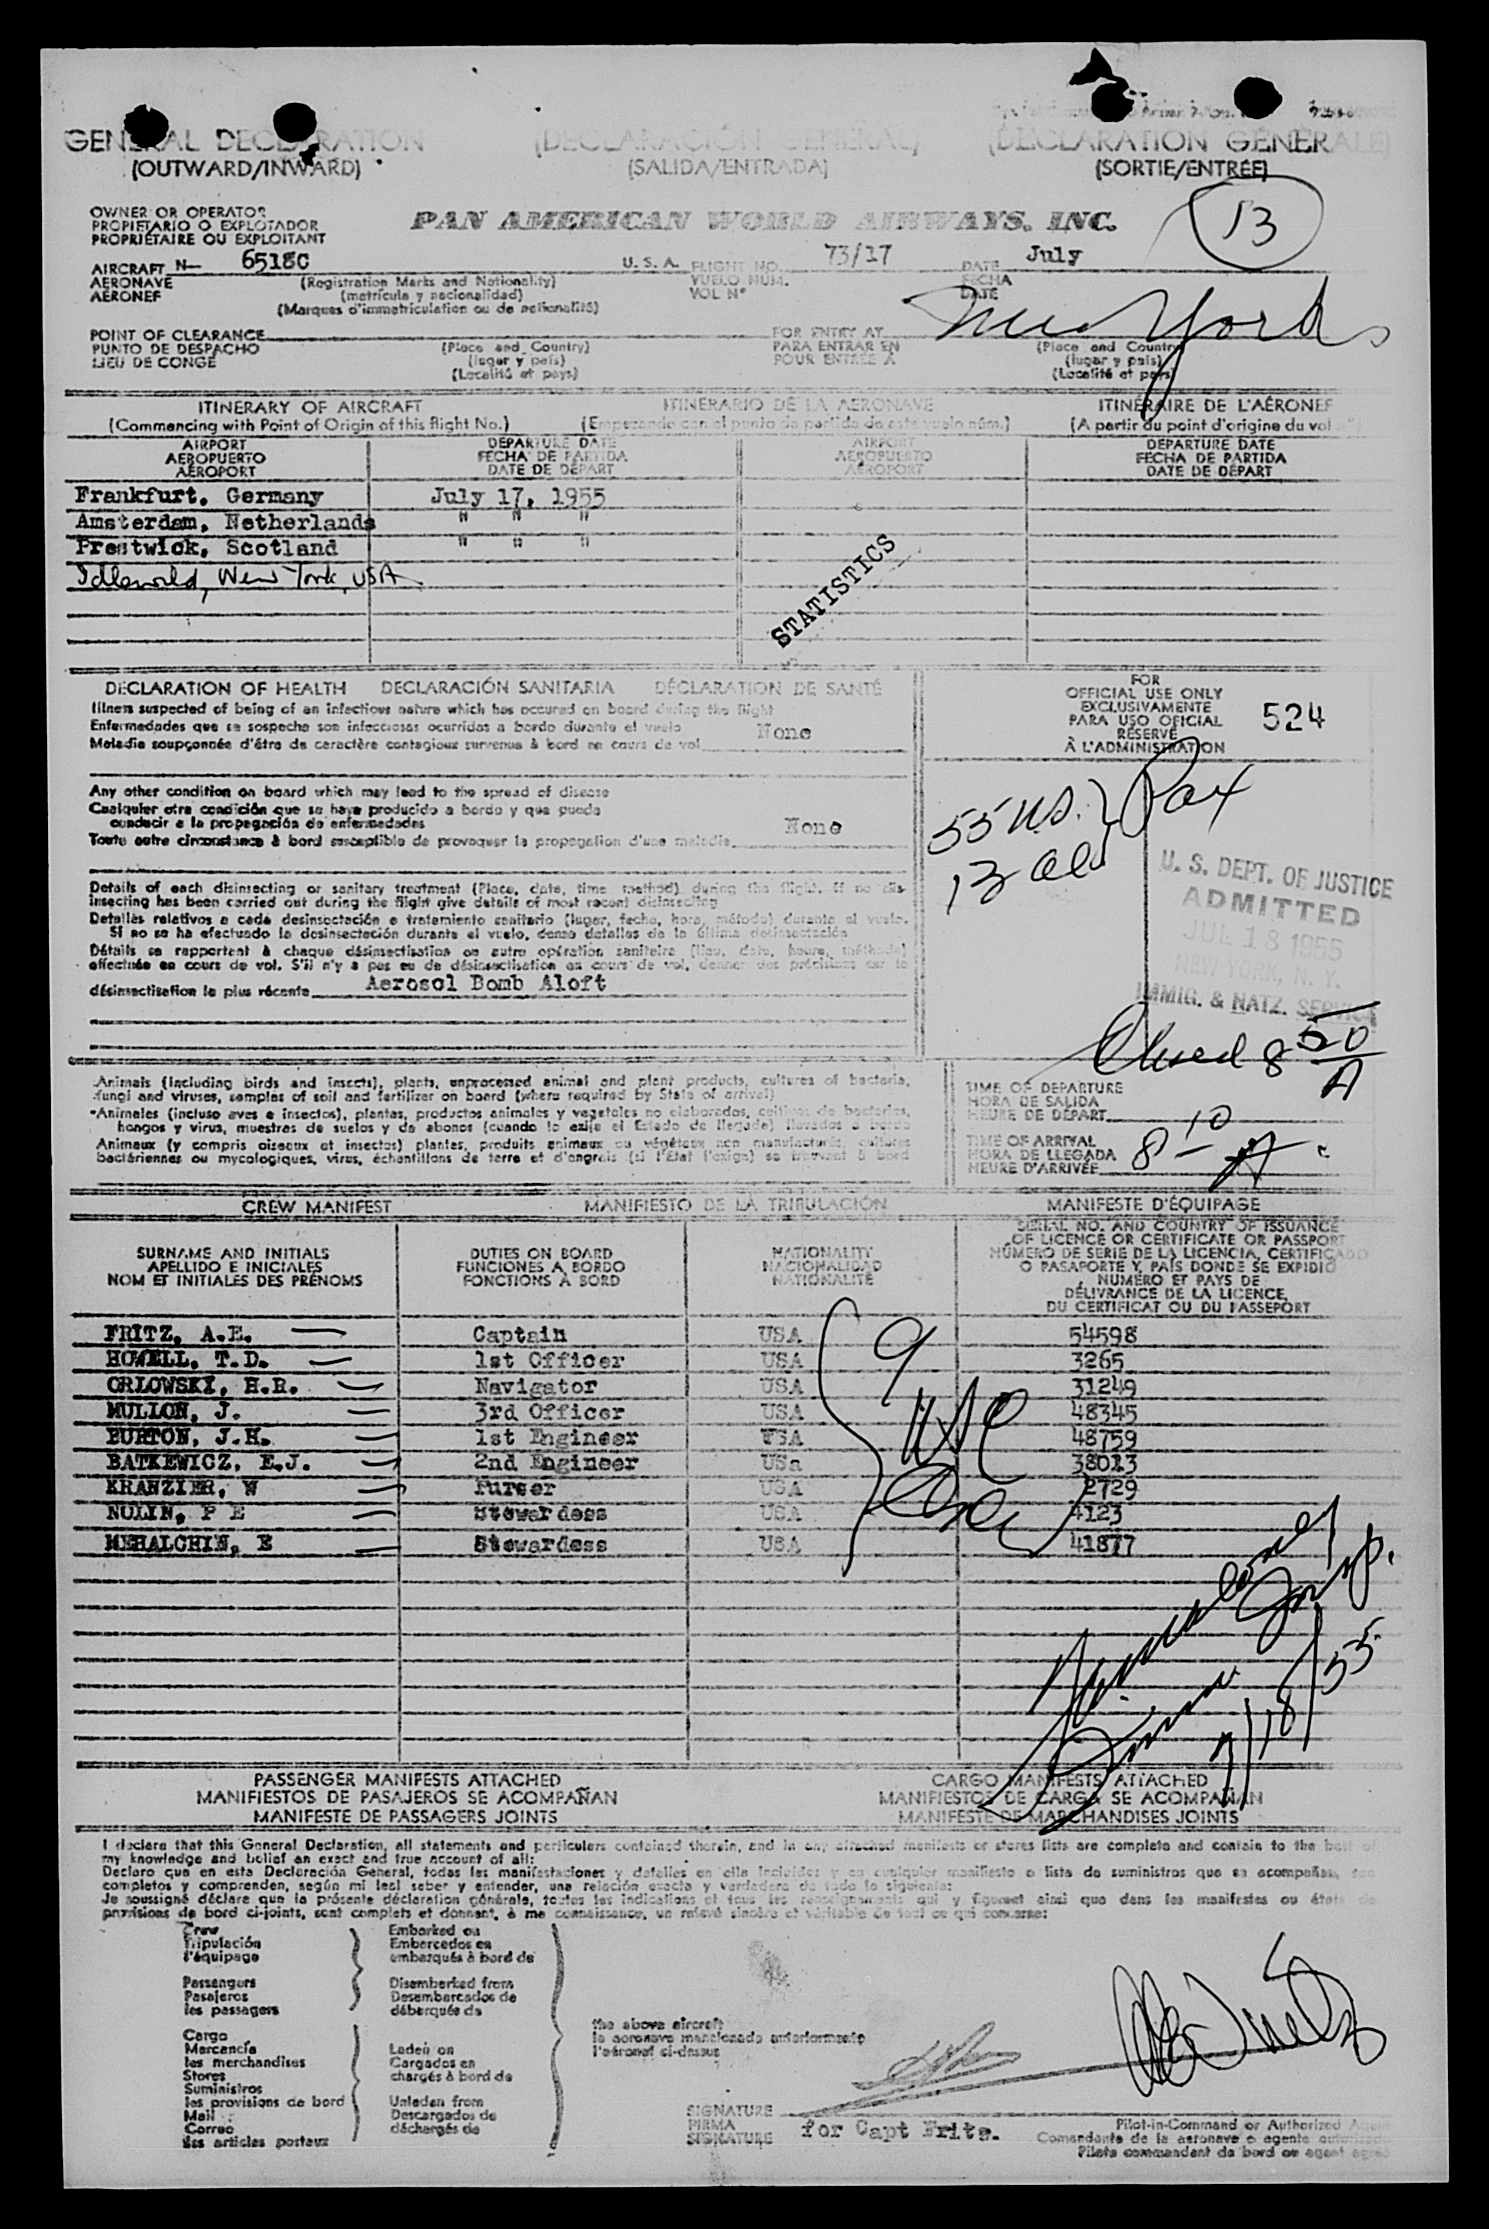 GENERAL DECLARATION (DECLARACIÓN GENERAL) (DECLARATION GÉNÉRALE)
(OUTWARD/INWARD) (SALIDA/ENTRADA) (SORTIE/ENTRÉE)
13
OWNER OR OPERATOR
PROPIETARIO O EXPLOTADOR
PROPRIÉTAIRE OU EXPLOITANT
PAN AMERICAN WORLD AIRWAYS, INC.
AIRCRAFT N- 6518C U.S.A. FLIGHT NO. 73/17 DATE July
AERONAVE (Registration Marks and Nationality) VUELO NÚM. FECHA
AÉRONEF (matrícula y nacionalidad) VOL Nº DATE
(Marques d'immatriculation ou de nationalité)
New York
POINT OF CLEARANCE FOR ENTRY AT
PUNTO DE DESPACHO (Place and Country) PARA ENTRAR EN (Place and Country)
LIEU DE CONGÉ (lugar y país) POUR ENTRÉE À (lugar y país)
(Localité et pays) (Localité et pays)
ITINERARY OF AIRCRAFT ITINERARIO DE LA AERONAVE ITINÉRAIRE DE L'AÉRONEF
(Commencing with Point of Origin of this flight No.) (Empezando con el punto de partida de este vuelo núm.) (A partir du point d'origine du vol
AIRPORT DEPARTURE DATE AIRPORT DEPARTURE DATE
AEROPUERTO FECHA DE PARTIDA AEROPUERTO FECHA DE PARTIDA
AÉROPORT DATE DE DÉPART AÉROPORT DATE DE DÉPART
Frankfurt, Germany July 17, 1955
Amsterdam, Netherlands " " "
Prestwick, Scotland " " "
Idlewild, New York, USA
STATISTICS
DECLARATION OF HEALTH DECLARACIÓN SANITARIA DÉCLARATION DE SANTÉ
Illness suspected of being of an infectious nature which has occured on board during the flight
Enfermedades que se sospecha son infecciosas ocurridas a bordo durante el vuelo
Maladie soupçonnée d'être de caractère contagieux survenue à bord au cours de vol None
Any other condition on board which may lead to the spread of disease
Cualquier otra condición que se haya producido a bordo y que pueda
conducir a la propagación de enfermedades
Toute autre circonstance à bord susceptible de provoquer la propagation d'une maladie None
Details of each disinsecting or sanitary treatment (Place, date, time method) during the flight. If no dis-
insecting has been carried out during the flight give details of most recent disinsecting
Detalles relativos a cada desinsectación o tratamiento sanitario (lugar, fecha, hora, método) durante el vuelo.
Si no se ha efectuado la desinsectación durante el vuelo, dense detalles de la última desinsectación
Détails se rapportant à chaque désinsectisation ou autre opération sanitaire (lieu, date, heure, méthode)
effectuée en cours de vol. S'il n'y a pas eu de désinsectisation au cours de vol, donner des précisions sur la
désinsectisation la plus récente Aerosol Bomb Aloft
FOR
OFFICIAL USE ONLY
EXCLUSIVAMENTE
PARA USO OFICIAL
RÉSERVÉ
À L'ADMINISTRATION
524
55 US. } Pax
13 Ali
U. S. DEPT. OF JUSTICE
ADMITTED
JUL 18 1955
NEW YORK, N. Y.
IMMIG. & NATZ. SERVICE
8 50 A
Animals (including birds and insects), plants, unprocessed animal and plant products, cultures of bacteria,
fungi and viruses, samples of soil and fertilizer on board (where required by State of arrival)
Animales (incluso aves e insectos), plantas, productos animales y vegetales no elaborados, cultivos de bacterias,
hongos y virus, muestras de suelos y de abonos (cuando lo exija el Estado de llegada) llevados a bordo
Animaux (y compris oiseaux et insectes) plantes, produits animaux ou végétaux non manufacturés, cultures
bactériennes ou mycologiques, virus, échantillons de terre et d'engrais (si l'État l'exige) se trouvant à bord
TIME OF DEPARTURE
HORA DE SALIDA
HEURE DE DÉPART
TIME OF ARRIVAL
HORA DE LLEGADA
HEURE D'ARRIVÉE 8 10 A
CREW MANIFEST MANIFIESTO DE LA TRIPULACIÓN MANIFESTE D'ÉQUIPAGE
SURNAME AND INITIALS
APELLIDO E INICIALES
NOM ET INITIALES DES PRÉNOMS
DUTIES ON BOARD
FUNCIONES A BORDO
FONCTIONS À BORD
NATIONALITY
NACIONALIDAD
NATIONALITÉ
SERIAL NO. AND COUNTRY OF ISSUANCE
OF LICENCE OR CERTIFICATE OR PASSPORT
NÚMERO DE SERIE DE LA LICENCIA, CERTIFICADO
O PASAPORTE Y PAÍS DONDE SE EXPIDIÓ
NUMÉRO ET PAYS DE
DÉLIVRANCE DE LA LICENCE,
DU CERTIFICAT OU DU PASSEPORT
FRITZ, A.E. Captain USA 54598
HOWELL, T.D. 1st Officer USA 3265
ORLOWSKI, H.R. Navigator USA 31249
MULLON, J. 3rd Officer USA 48345
BURTON, J.H. 1st Engineer USA 48759
BATKEWICZ, E.J. 2nd Engineer USa 38013
KRANZIER, W Purser USA 2729
NOLIN, P E Stewardess USA 4123
MEHALCHIN, E Stewardess USA 41877
9 USC
7/18/55
PASSENGER MANIFESTS ATTACHED
MANIFIESTOS DE PASAJEROS SE ACOMPAÑAN
MANIFESTE DE PASSAGERS JOINTS
CARGO MANIFESTS ATTACHED
MANIFIESTOS DE CARGA SE ACOMPAÑAN
MANIFESTE DE MARCHANDISES JOINTS
I declare that this General Declaration, all statements and particulars contained therein, and in any attached manifests or stores lists are complete and contain to the best of
my knowledge and belief an exact and true account of all:
Declaro que en esta Declaración General, todas las manifestaciones y detalles en ella incluidos y en cualquier manifiesto o lista de suministros que se acompañan, son
completos y comprenden, según mi leal saber y entender, una relación exacta y verdadera de todo lo siguiente:
Je soussigné déclare que la présente déclaration générale, toutes les indications et tous les renseignements qui y figurent ainsi que dans les manifestes ou états de
provisions de bord ci-joints, sont complets et donnent, à ma connaissance, un relevé sincère et véritable de tout ce qui concerne:
Crew
Tripulación
l'équipage
Passengers
Pasajeros
les passagers
Embarked on
Embarcados en
embarqués à bord de
Disembarked from
Desembarcados de
débarqués de
Cargo
Mercancía
les marchandises
Stores
Suministros
les provisions de bord
Mail
Correo
les articles postaux
Laden on
Cargados en
chargés à bord de
Unladen from
Descargados de
déchargés de
the above aircraft
la aeronave mencionada anteriormente
l'aéronef ci-dessus
SIGNATURE
FIRMA
SIGNATURE
for Capt Fritz.
Pilot-in-Command or Authorized Agent
Comandante de la aeronave o agente autorizado
Pilote commandant de bord ou agent agréé